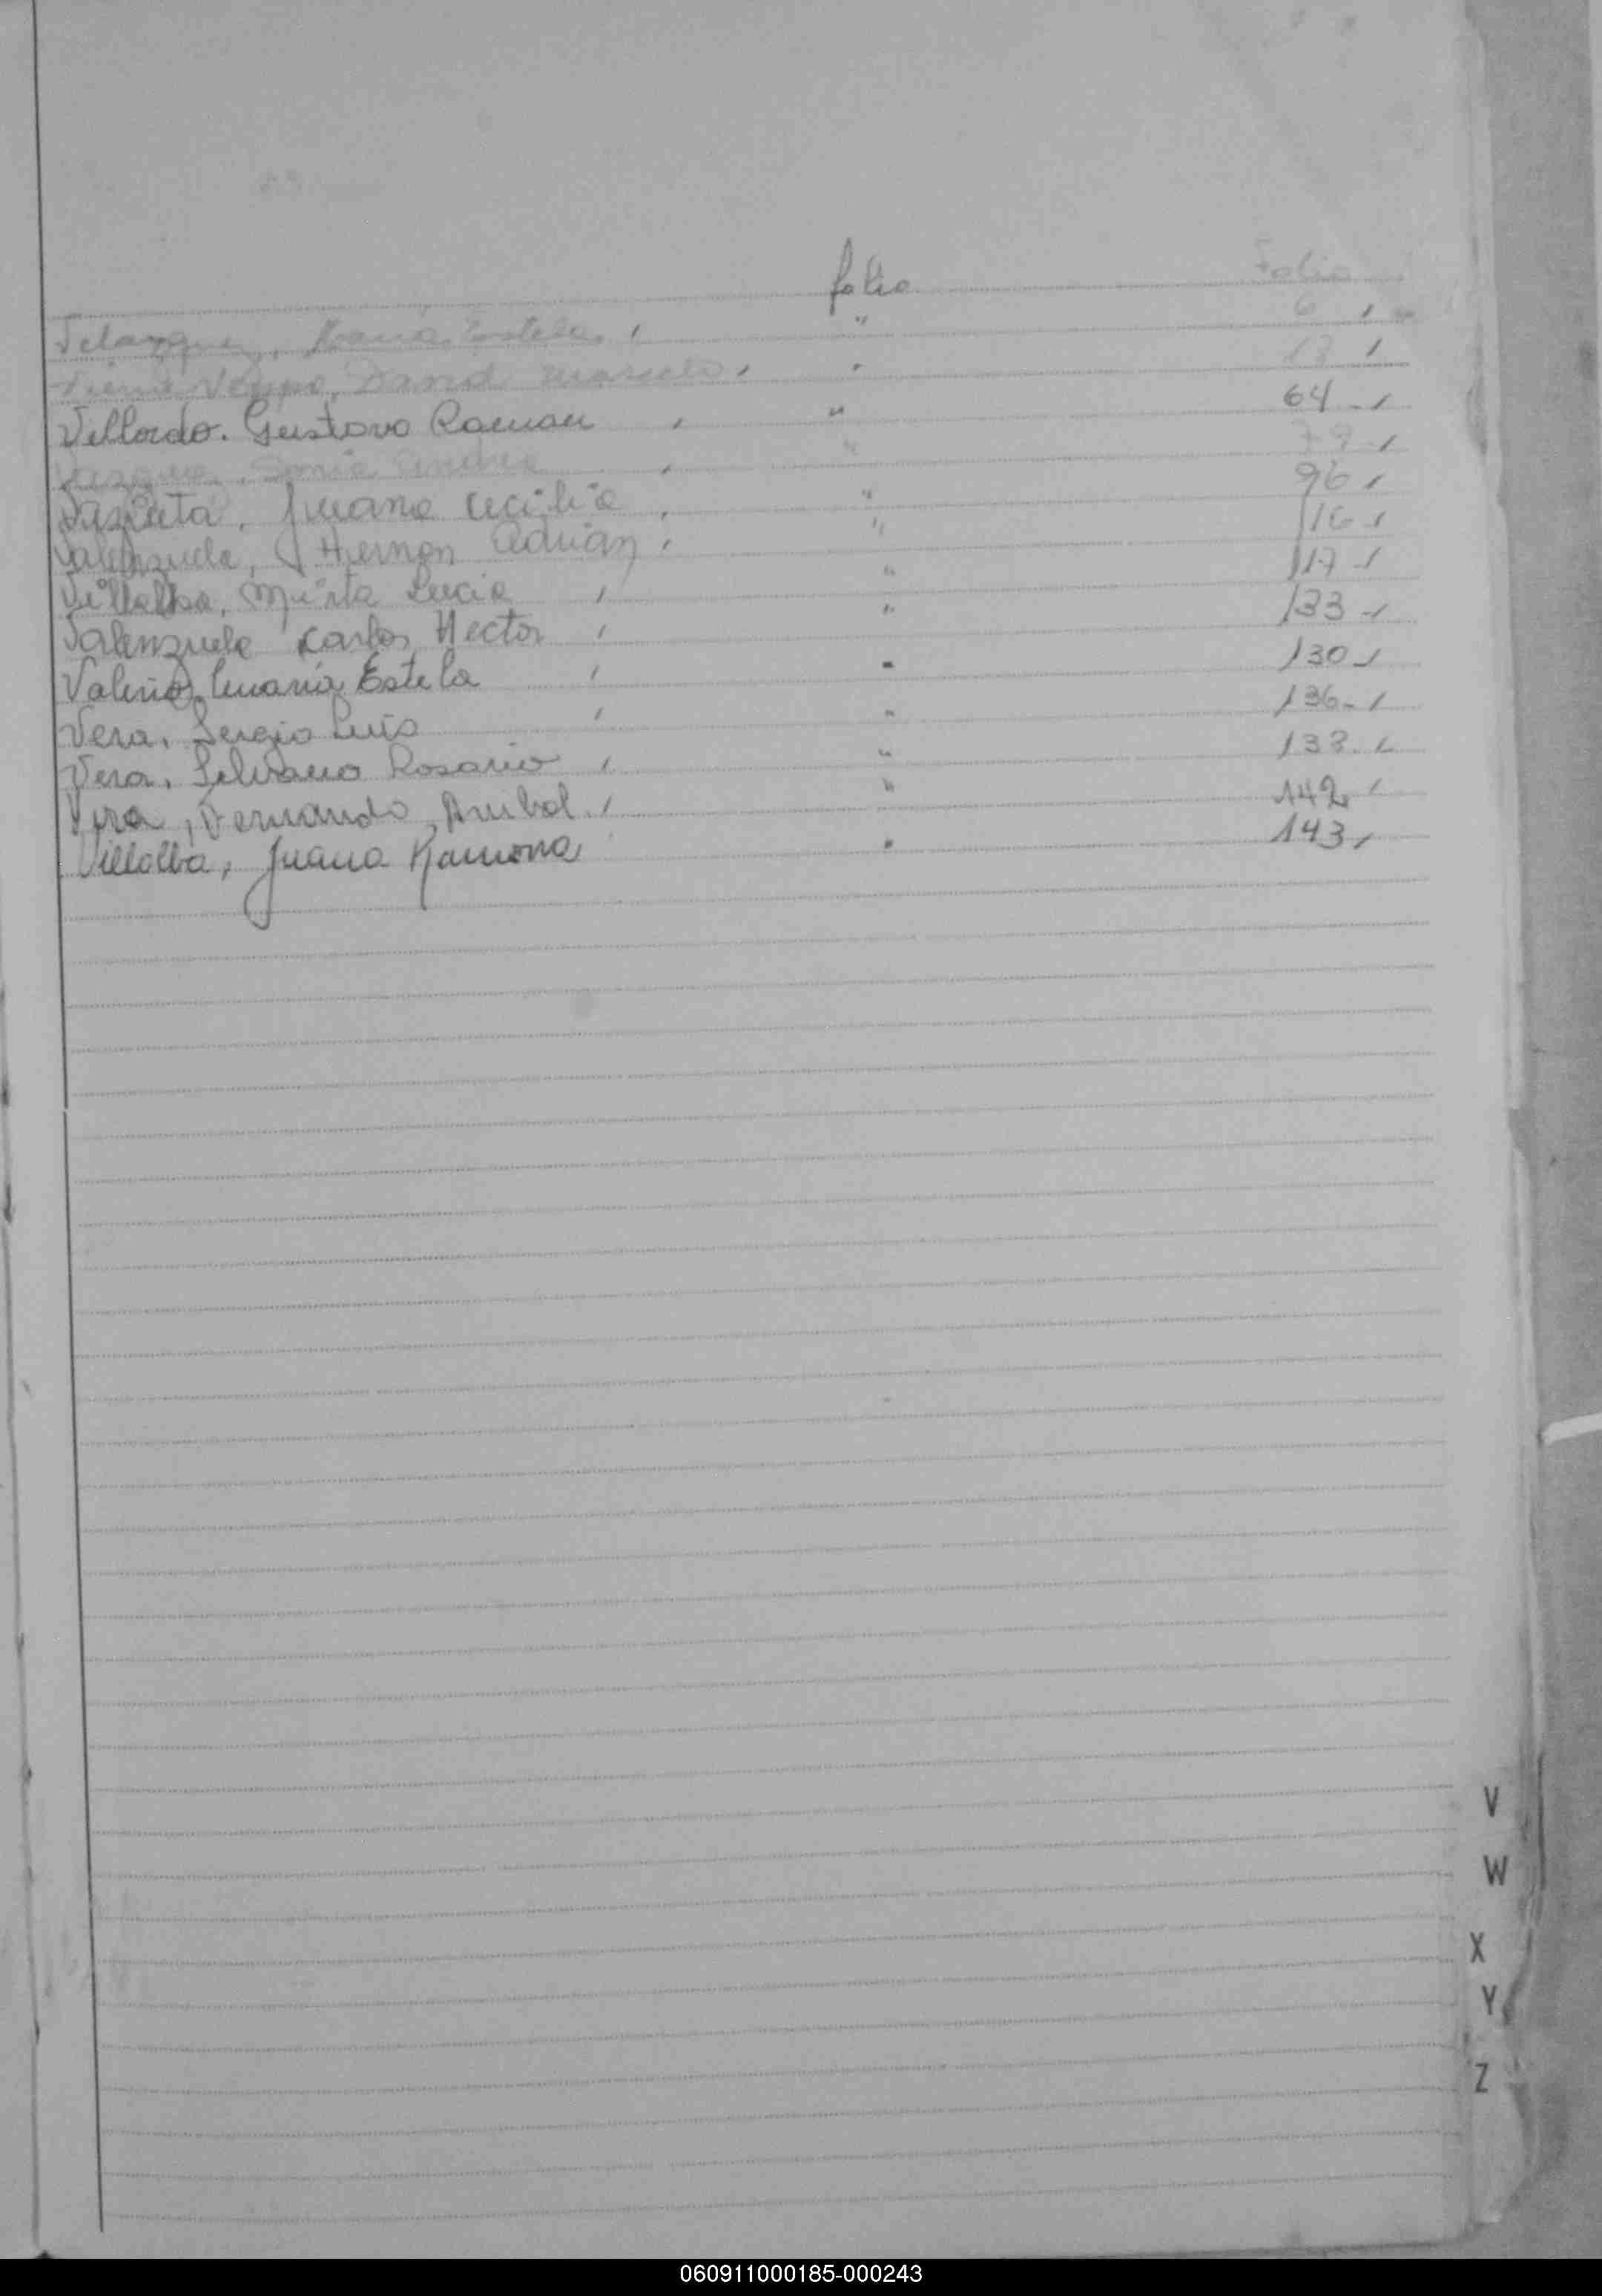 folio Folio
Velazquez, Maria Estela, " 6
David Marcelo, " 13
Villordo. Gustavo Roman " 64
Sonia Andrea " 79
Juana Cecilia " 96
Valenzuela, Hernan Adrian, " 116
Villalba, Mirta Lucia " 117
Valenzuela Carlos Hector " 133
Valerio, Maria Estela " 130
Vera, Sergio Luis " 136
Vera, Silvano Rosario " 138
Vera, Fernando Anibal " 142
Villalba, Juana Ramona " 143
V
W
X
Y
Z
060911000185-000243